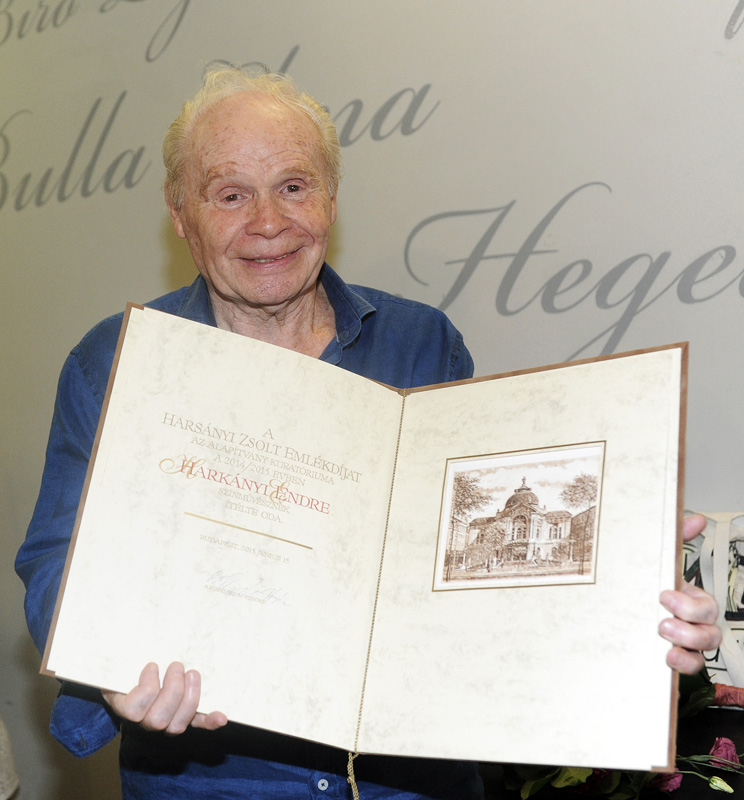 Bíró
Bulla Elma
Hege
A
HARSÁNYI ZSOLT EMLÉKDÍJAT
AZ ALAPÍTVÁNY KURATÓRIUMA
A 2014/2015 ÉVBEN
HARKÁNYI ENDRE
SZÍNMŰVÉSZNEK
ÍTÉLTE ODA.